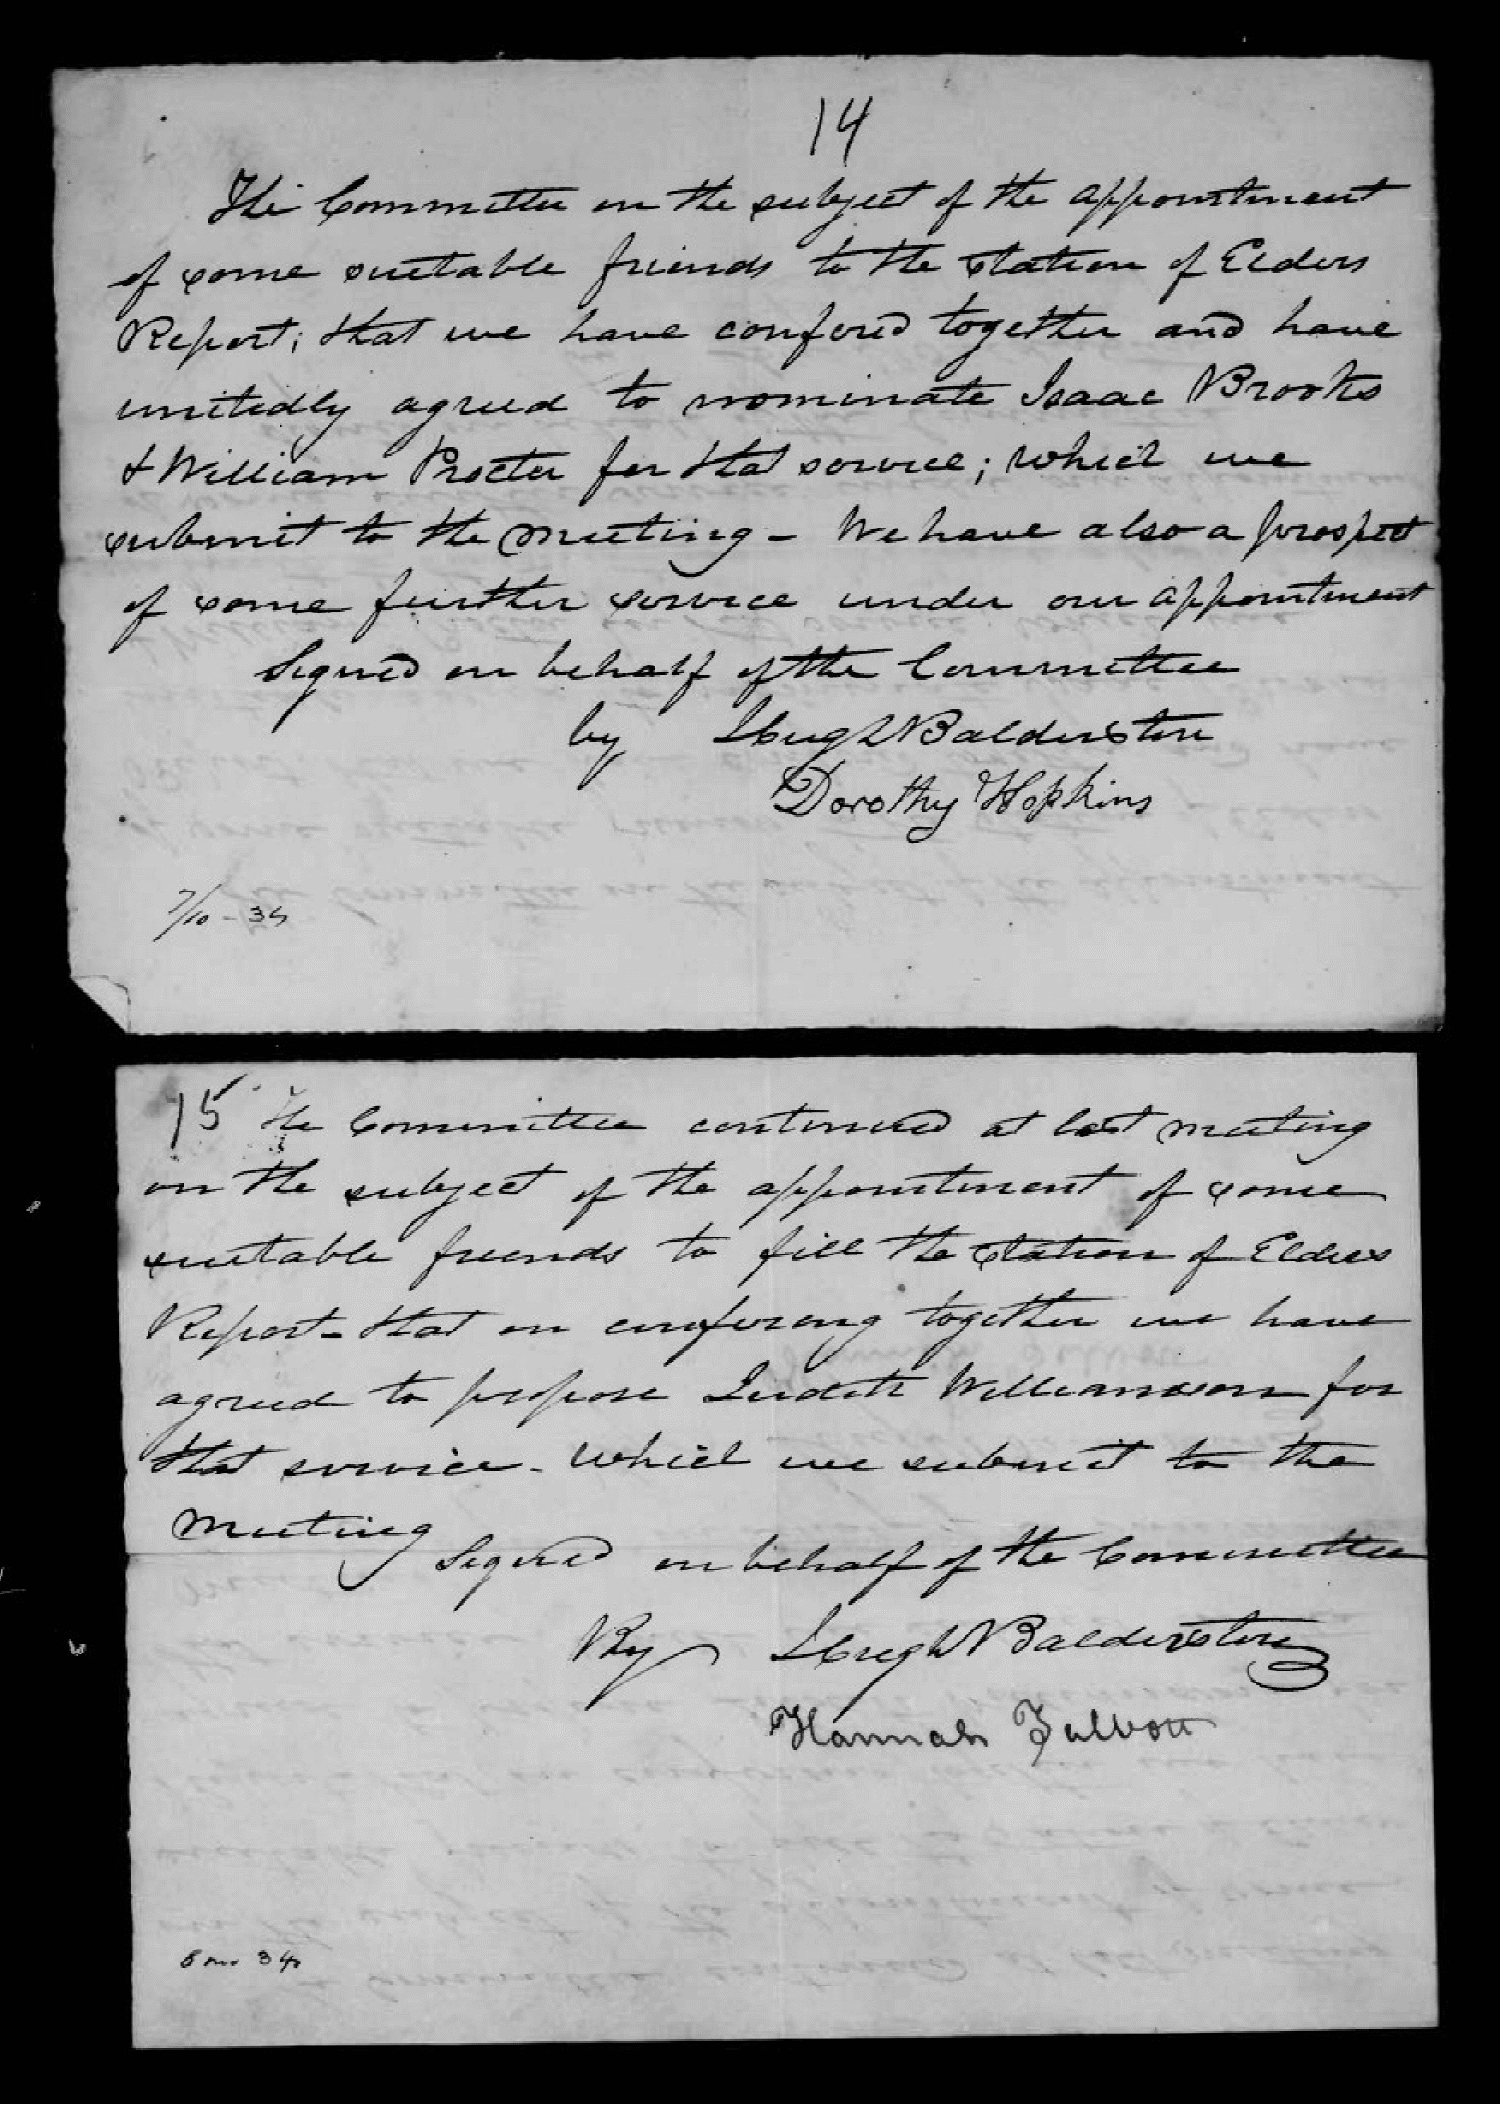 14
The Committee on the subject of the appointment
of some suitable friends to the station of Elders
Report; that we have confered together and have
unitedly agreed to nominate Isaac Brooks
& William Procter for that service; which we
submit to the meeting - We have also a prospect
of some further service under our appointment
Signed on behalf of the Committee
by Hugh Balderstone
Dorothy Hopkins
7/10 - 34
15 The Committee continued at last meeting
on the subject of the appointment of some
suitable friends to fill the station of Elders
Report - that on confering together we have
agreed to propose Judith Williamson for
that service - which we submit to the
meeting
Signed on behalf of the Committee
By Hugh Balderstone
Hannah Talbott
8 mo 34